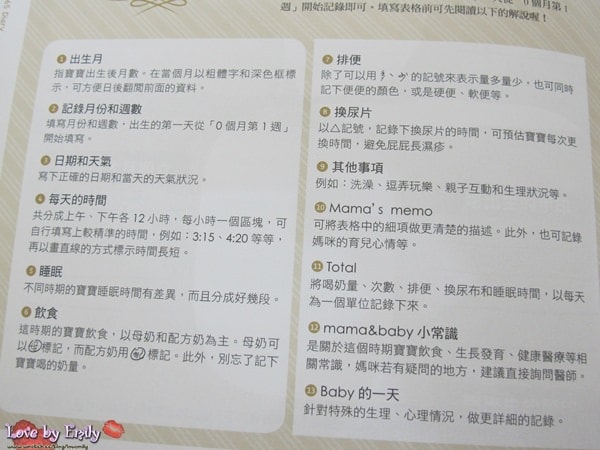 週」開始記錄即可。填寫表格前可先閱讀以下的解說喔！
1 出生月
指寶寶出生後月數。在當個月以粗體字和深色框標
示，可方便日後翻閱前面的資料。
2 記錄月份和週數
填寫月份和週數，出生的第一天從「0個月第1週」
開始填寫。
3 日期和天氣
寫下正確的日期和當天的天氣狀況。
4 每天的時間
共分成上午、下午各12小時，每小時一個區塊，可
自行填寫上較精準的時間，例如：3:15、4:20等等，
再以畫直線的方式標示時間長短。
5 睡眠
不同時期的寶寶睡眠時間有差異，而且分成好幾段。
6 飲食
這時期的寶寶飲食，以母奶和配方奶為主。母奶可
以母標記，而配方奶用配標記。此外，別忘了記下
寶寶喝的奶量。
7 排便
除了可以用多、少的記號來表示量多量少，也可同時
記下便便的顏色，或是硬便、軟便等。
8 換尿片
以△記號，記錄下換尿片的時間，可預估寶寶每次更
換時間，避免屁屁長濕疹。
9 其他事項
例如：洗澡、逗弄玩樂、親子互動和生理狀況等。
10 Mama's memo
可將表格中的細項做更清楚的描述。此外，也可記錄
媽咪的育兒心情等。
11 Total
將喝奶量、次數、排便、換尿布和睡眠時間，以每天
為一個單位記錄下來。
12 mama&baby 小常識
是關於這個時期寶寶飲食、生長發育、健康醫療等相
關常識，媽咪若有疑問的地方，建議直接詢問醫師。
13 Baby 的一天
針對特殊的生理、心理情況，做更詳細的記錄。
Love by Emily